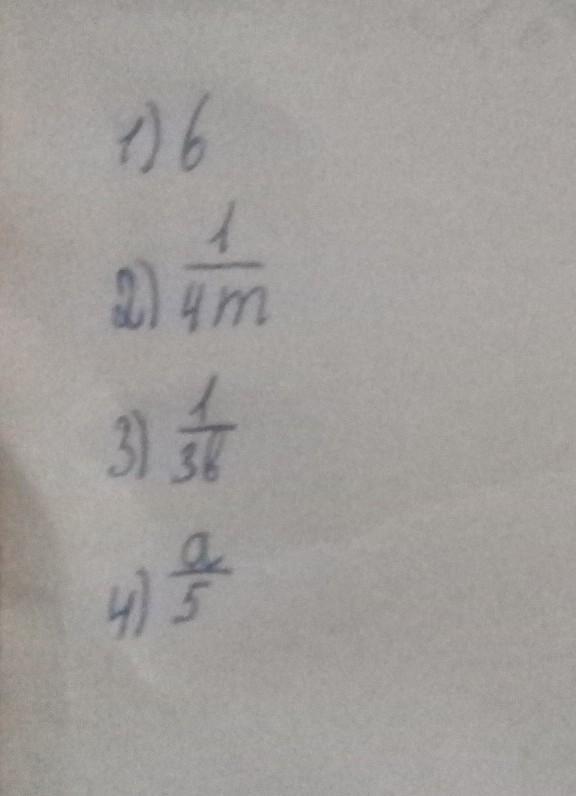 1) 6
2) 1/4m
3) 1/3b
4) a/5